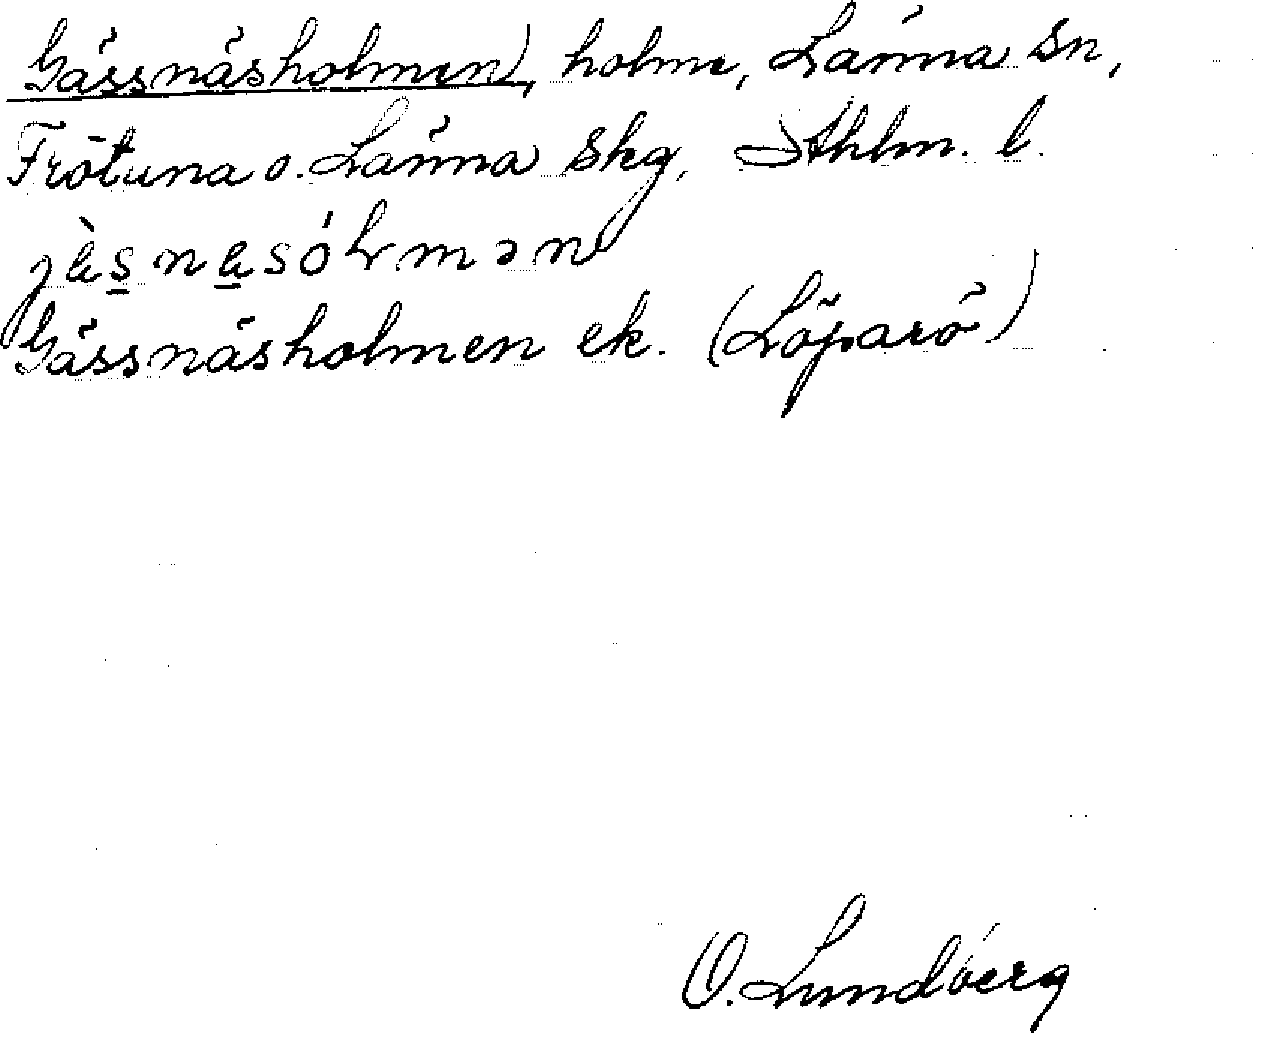 Gässnäsholmen), holme, Länna sn,
Frötuna o. Länna skg, Sthlm. l.
Gässnäsholmen ek. (Löparö)
O. Lundberg